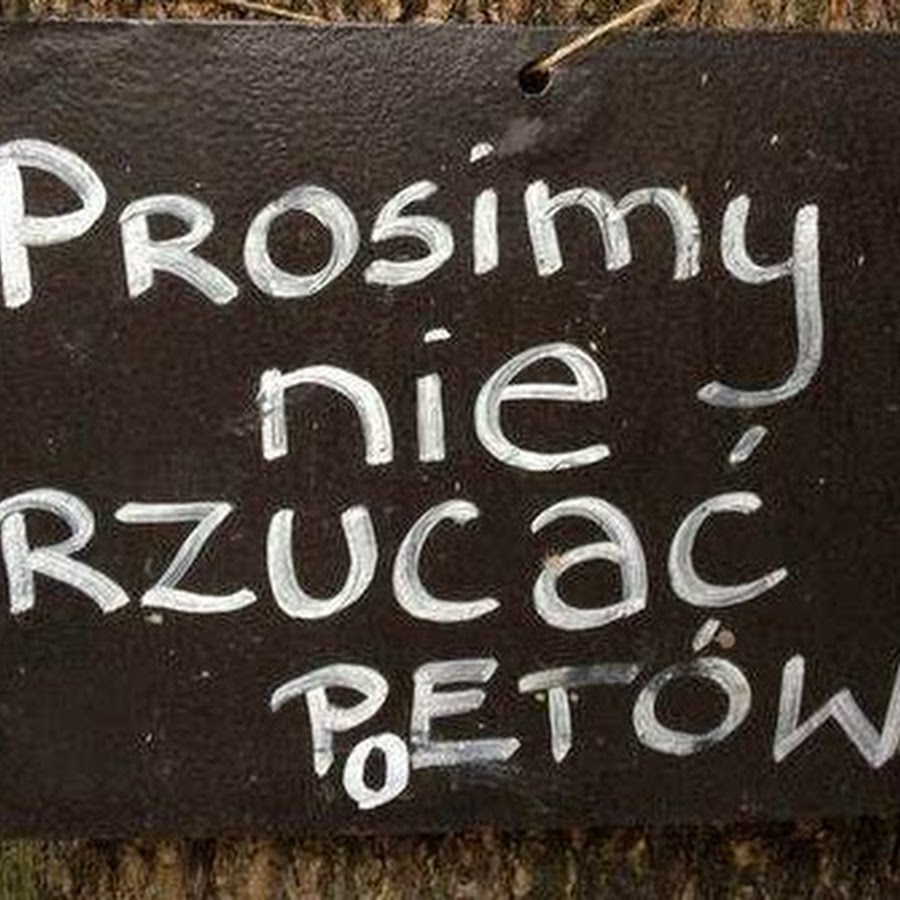 Prosimy
nie
RZUCAĆ
POETÓW